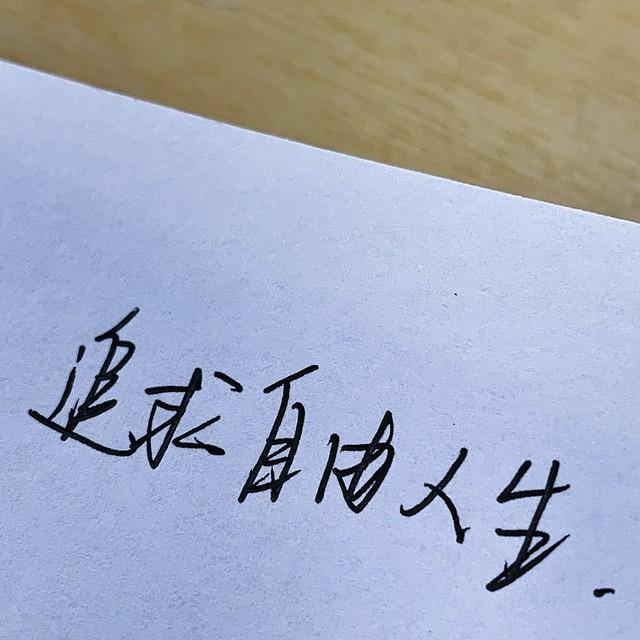 追求自由人生.